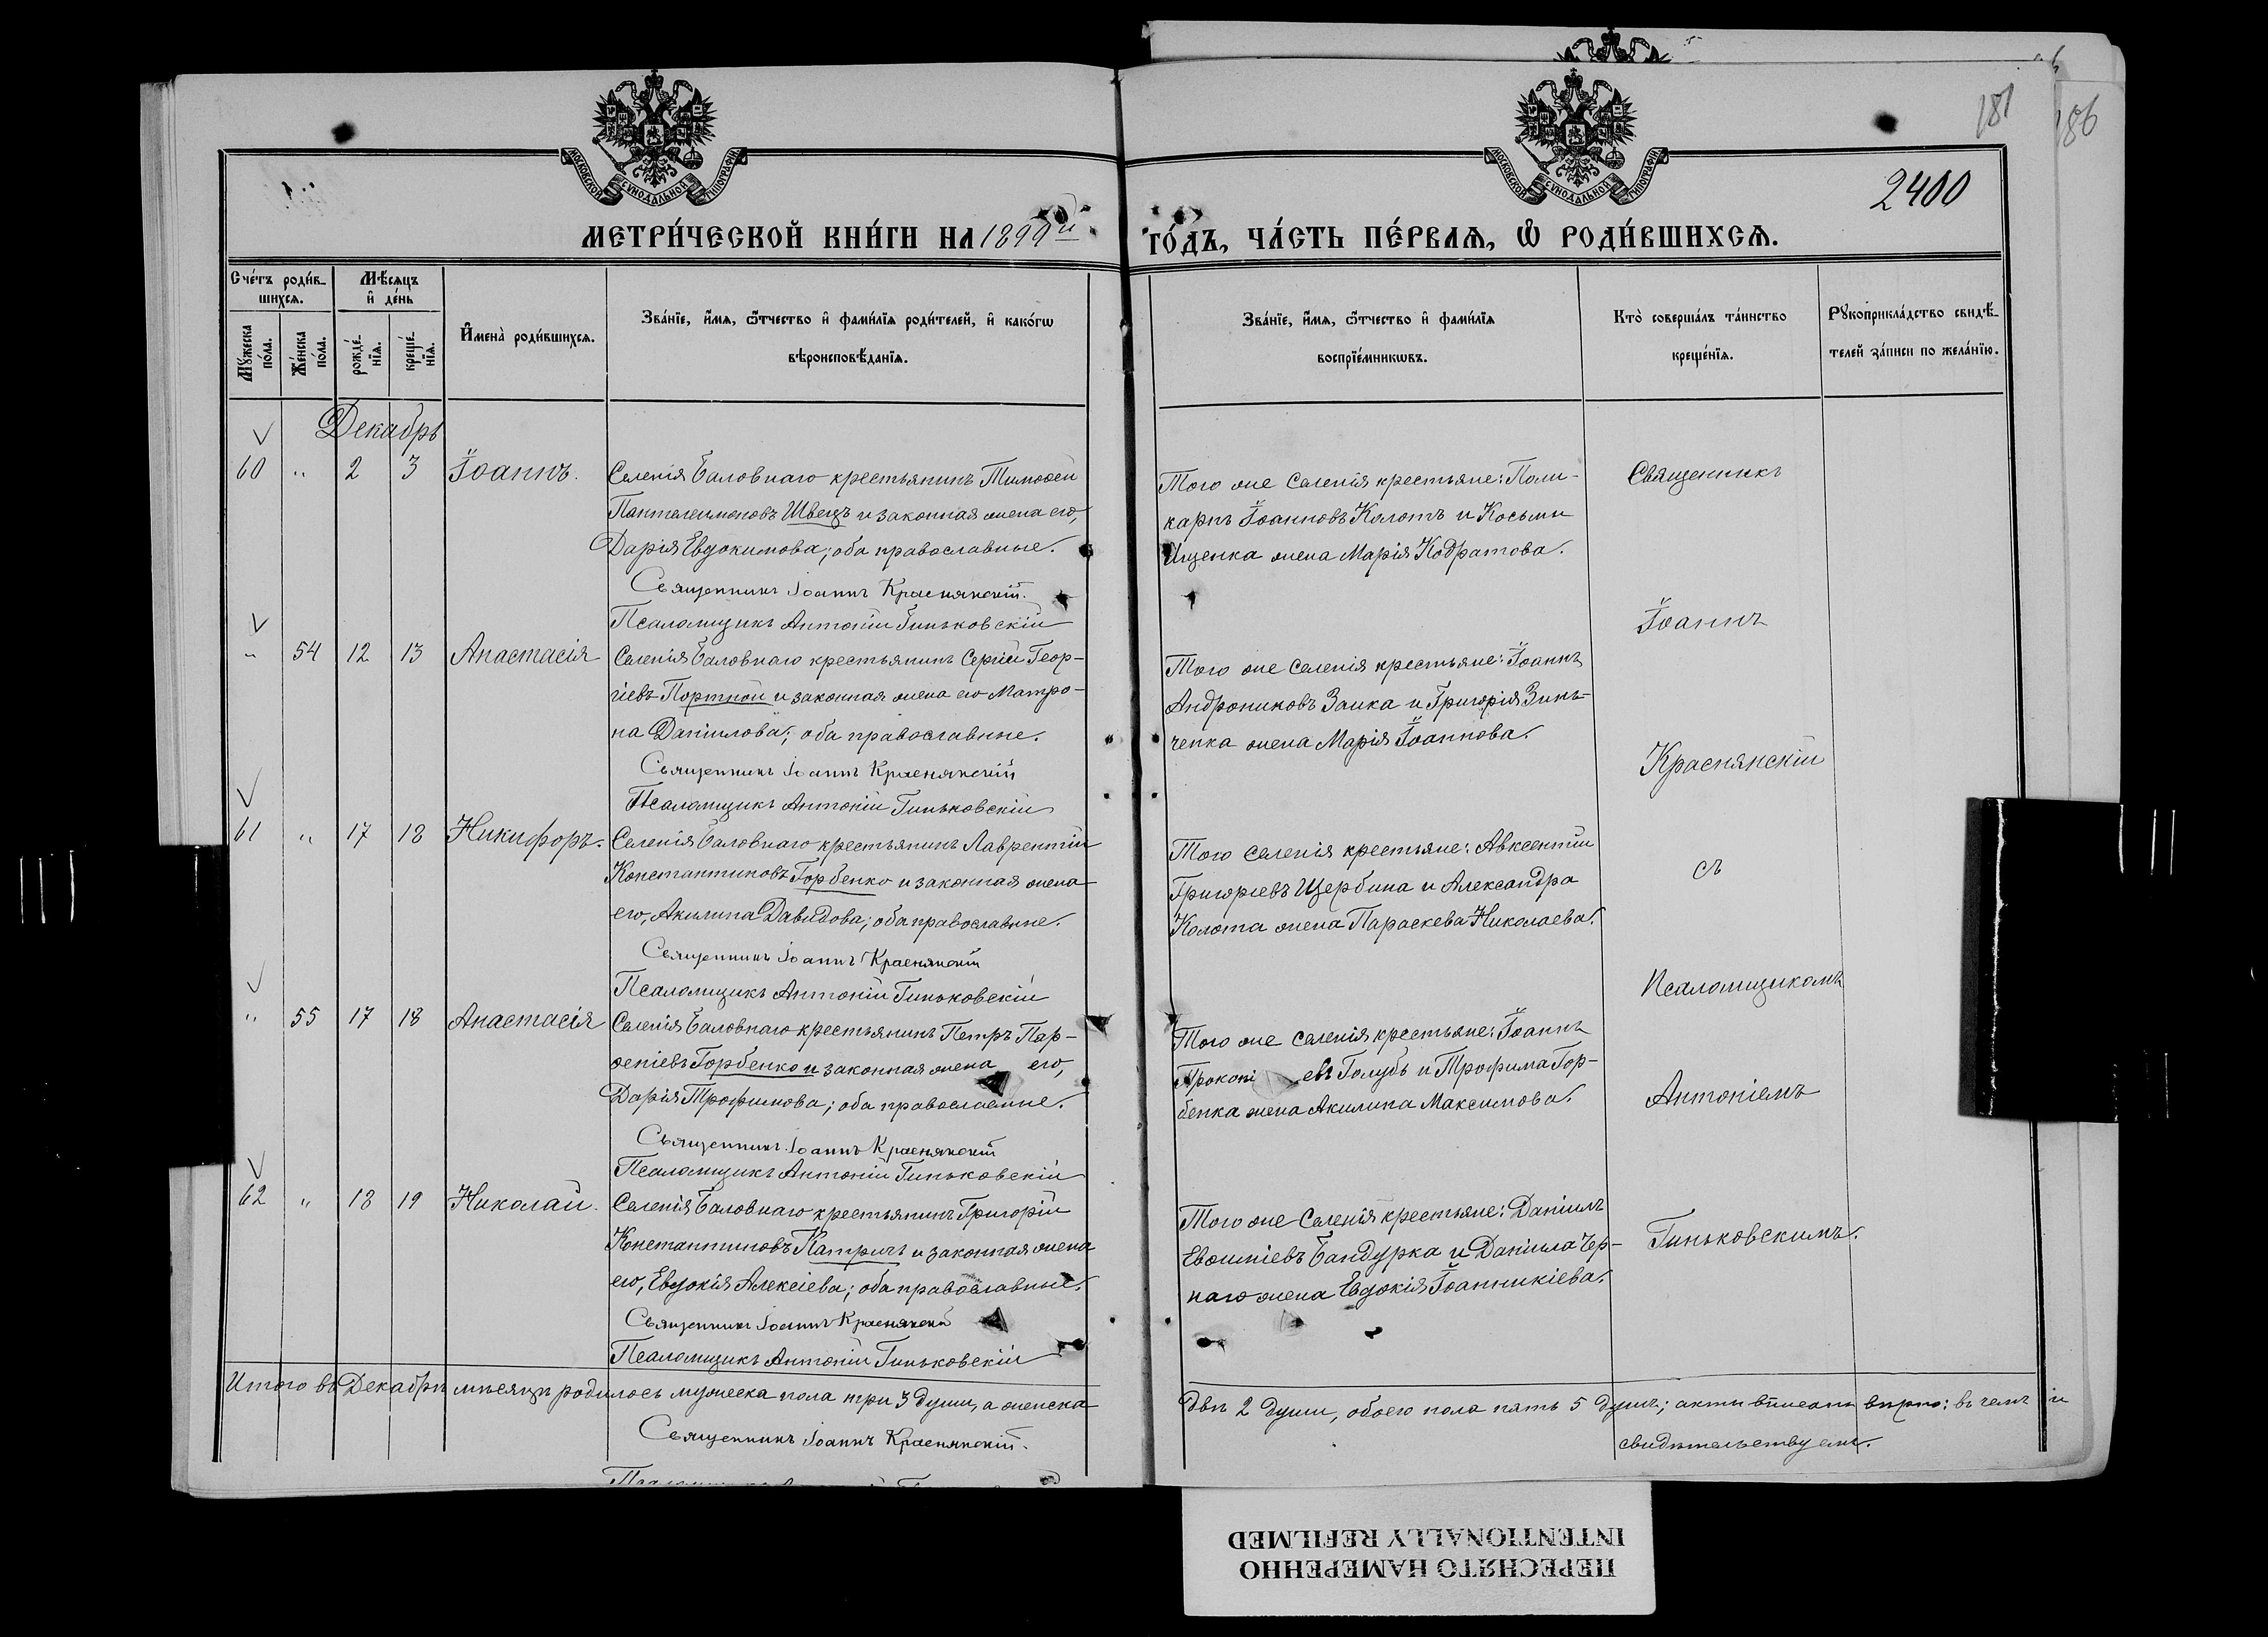 181
186
2400
МОСКОВСКОЙ СѴНОДАЛЬНОЙ ТИПОГРАФІИ
МОСКОВСКОЙ СѴНОДАЛЬНОЙ ТИПОГРАФІИ
МЕТРИ́ЧЕСКОЙ КНИ́ГИ НА 1899й ГО́ДЪ, ЧА́СТЬ ПЕ́РВАѦ, Ѡ҆ РОДИ́ВШИХСѦ.
Сче́тъ роди́в-
шихсѧ.
Мѣ́сѧцъ
и҆ де́нь
Мꙋ́жеска по́ла.
Же́нска по́ла.
рожде́-
нїѧ.
креще́-
нїѧ.
И҆мена̀ роди́вшихсѧ.
Зва́нїе, и҆́мѧ, ѻ҆́тчество и҆ фами́лїѧ роди́телей, и҆ како́гѡ
вѣроисповѣ́данїѧ.
Зва́нїе, и҆́мѧ, ѻ҆́тчество и҆ фами́лїѧ
воспрїе́мникѡвъ.
Кто̀ соверша́лъ та́инство
креще́нїѧ.
Рꙋкоприкла́дство свидѣ́-
телей за́писи по жела́нїю.
Декабрь
60 " 2 3 Іоаннъ. Селенія Баловнаго крестьянинъ Тимоѳей
Пантелеимоновъ Швецъ и законная жена его,
Дарія Евдокимова; оба православные.
Священникъ Іоаннъ Краснянскій.
Псаломщикъ Антоній Гиньковскій
Того же селенія крестьяне: Поли-
карпъ Іоанновъ Колотъ и Косьмы
Ищенка жена Марія Кодратова.
" 54 12 13 Анастасія Селенія Баловнаго крестьянинъ Сергій Геор-
гіевъ Портной и законная жена его Матро-
на Даніилова; оба православные.
Священникъ Іоаннъ Краснянскій
Псаломщикъ Антоній Гиньковскій
Того же селенія крестьяне: Іоаннъ
Андрониковъ Заика и Григорія Зинь-
ченка жена Марія Іоаннова.
61 " 17 18 Никифоръ. Селенія Баловнаго крестьянинъ Лаврентій
Константиновъ Горбенко и законная жена
его, Акилина Давидова; оба православные.
Священникъ Іоаннъ Краснянскій
Псаломщикъ Антоній Гиньковскій
Того селенія крестьяне: Авксентій
Григоріевъ Щербина и Александра
Колота жена Параскева Николаева.
" 55 17 18 Анастасія Селенія Баловнаго крестьянинъ Петръ Пар-
ѳеніевъ Горбенко и законная жена его,
Дарія Трофимова; оба православные.
Священникъ Іоаннъ Краснянскій
Псаломщикъ Антоній Гиньковскій
Того же селенія крестьяне: Іоаннъ
Прокопі евъ Голубь и Трофима Гор-
бенка жена Акилина Максимова.
62 " 18 19 Николай. Селенія Баловнаго крестьянинъ Григорій
Константиновъ Катричъ и законная жена
его, Евдокія Алексіева; оба православные.
Священникъ Іоаннъ Краснянскій
Псаломщикъ Антоній Гиньковскій
Того же селенія крестьяне: Даніилъ
Евѳиміевъ Бандурка и Даніила Чер-
наго жена Евдокія Іоанникіева.
Священникъ
Іоаннъ
Краснянскій
съ
Псаломщикомъ
Антоніемъ
Гиньковскимъ.
Итого въ Декабрѣ мѣсяцѣ родилось мужеска пола три 3 души, а женска двѣ 2 души, обоего пола пять 5 душъ; акты вписаны вѣрно: въ чемъ и
свидѣтельствуемъ.
Священникъ Іоаннъ Краснянскій.
ПЕРЕСНЯТО НАМЕРЕННО
INTENTIONALLY REFILMED